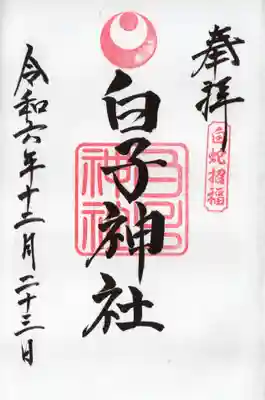 奉拝
白蛇招福
白子神社
白子神社
令和六年十二月二十三日